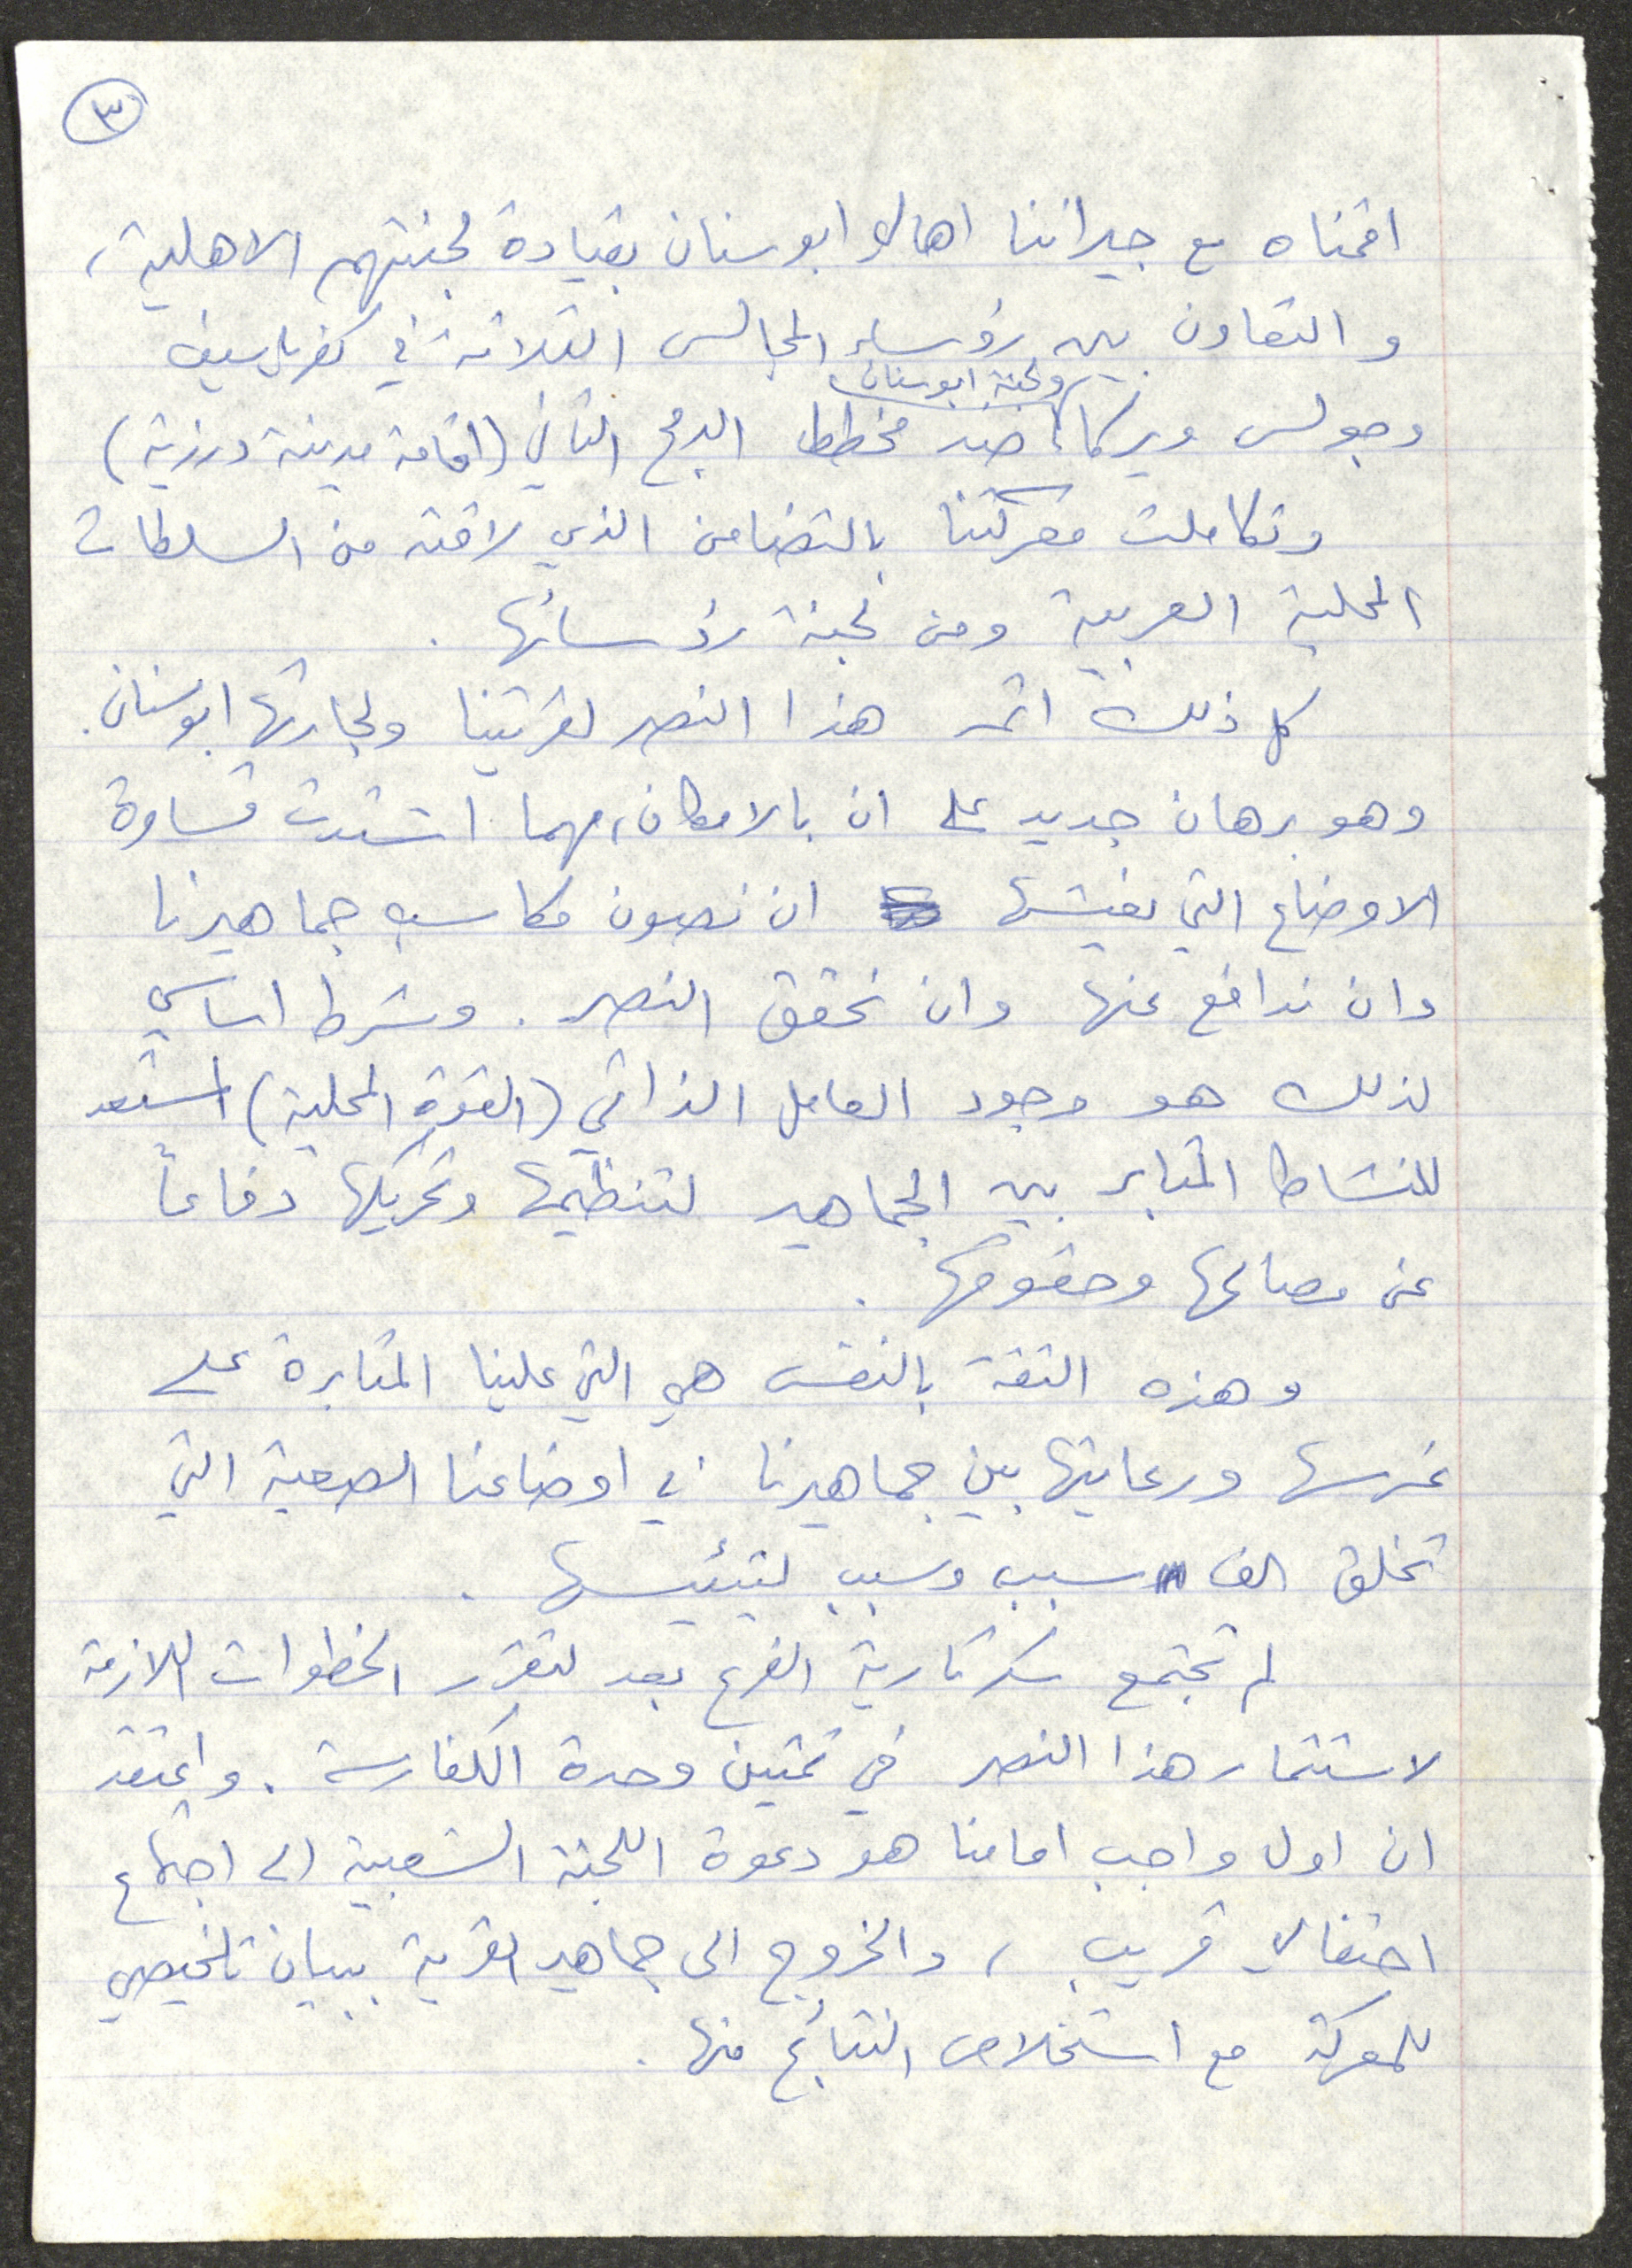 ٣
اقمناه مع جيراننا اهالي ابوسنان بقيادة لجنتهم الاهلية،
و التعاون بين رؤساء المجالس الثلاثة في كفرياسيف
ولجنة ابوسنان
وجولس ويركا، ضد مخطط الدمج الثاني (اقامة مدينة درزية)
وتكاملت معركتنا بالتضامن الذي لاقته من السلطات
المحلية العربية ومن لجنة رؤسائها .
كل ذلك اثمر هذا النصر لقريتنا ولجارتها ابوسنان.
وهو برهان جديد على ان بالامكان، مهما اشتدت قساوة
الاوضاع التي نعيشها ان نصون مكاسب جماهيرنا
وان ندافع عنها وان نحقق النصر . وشرط اساسي
لذلك هو وجود العامل الذاتي (القوة المحلية) المستعد
للنشاط المثابر بين الجماهير لتنظيمها وتحريكها دفاعاً
عن مصالحها وحقوقها .
وهذه الثقة بالنفس هي التي علينا المثابرة على
غرسها ورعايتها بين جماهيرنا في اوضاعنا الصعبة التي
تخلق الف سبب وسبب لتيئيسها .
لم تجتمع سكرتارية الفرع بعد لتقرر الخطوات اللازمة
لاستثمار هذا النصر في تمتين وحدة الكفارسة . واعتقد
ان اول واجب امامنا هو دعوة اللجنة الشعبية الى اجتماع
احتفالي قريب ، والخروج الى جماهير القرية ببيان تلخيصي
للمعركة مع استخلاص النتائج منها .